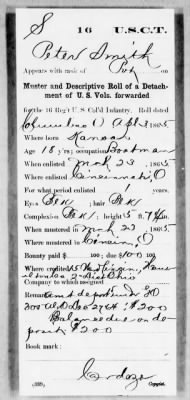 S 16 U.S.C.T.
Peter Smith
Appears with rank of Pvt on
Muster and Descriptive Roll of a Detach-
ment of U. S. Vols. forwarded
for the 16 Reg't U.S. Col'd Infantry. Roll dated
Columbus O Apl 3, 1865.
Where born Kansas
Age 18 y'rs; occupation Boatman
When enlisted Mch 23, 1865
Where enlisted Cincinnati, O
For what period enlisted 1 years.
Eyes Blk; hair Blk
Complexion Blk; height 5 ft. 7 in.
When mustered in Mch 23, 1865
Where mustered in Cincin, O
Bounty paid $ 100; due $ 100
Where credited
2 Dist Ohio
Company to which assigned
Remarks:
$200
Balance due on de-
posit $200
Book mark:
(339) Copyist.